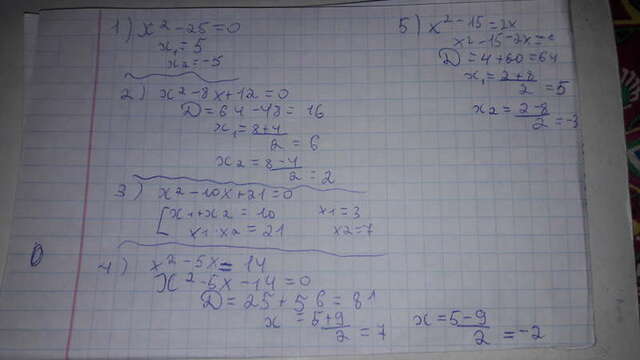 1) x² - 25 = 0
x₁ = 5
x₂ = -5
2) x² - 8x + 12 = 0
D = 64 - 48 = 16
x₁ = 8+4/2 = 6
x₂ = 8-4/2 = 2
3) x² - 10x + 21 = 0
[x₁ + x₂ = 10 x₁ = 3
x₁ · x₂ = 21 x₂ = 7
4) x² - 5x = 14
x² - 5x - 14 = 0
D = 25 + 56 = 81
x = 5+9/2 = 7
x = 5-9/2 = -2
5) x² - 15 = 2x
x² - 15 - 2x = 0
D = 4 + 60 = 64
x₁ = 2+8/2 = 5
x₂ = 2-8/2 = -3